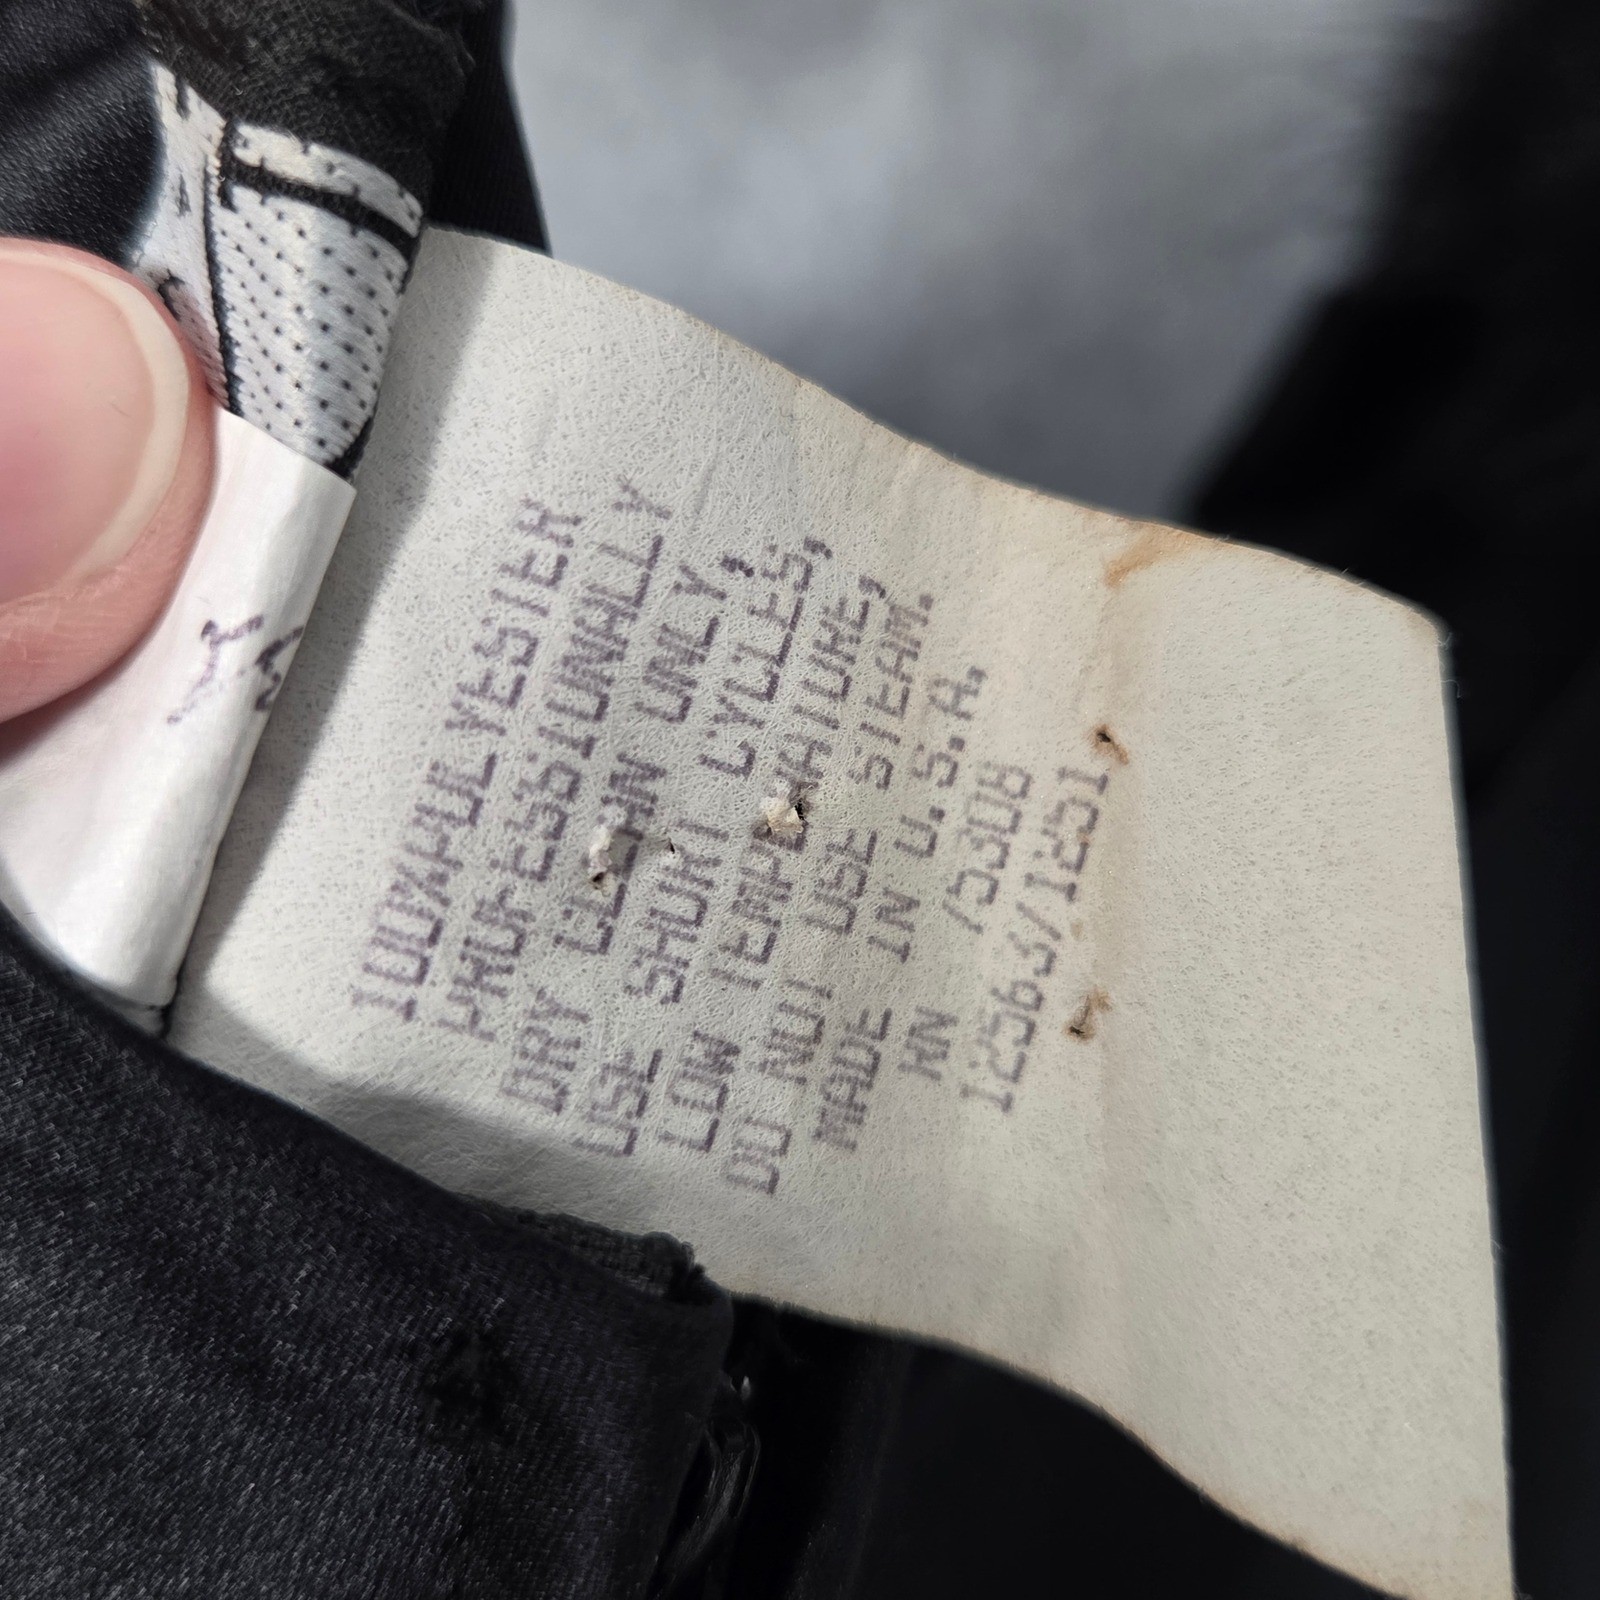 100%POLYESTER
PROFESSIONALLY
DRY CLEAN ONLY,
USE SHORT CYCLES,
LOW TEMPERATURE,
DO NOT USE STEAM.
MADE IN U.S.A.
RN 75308
12563/1251